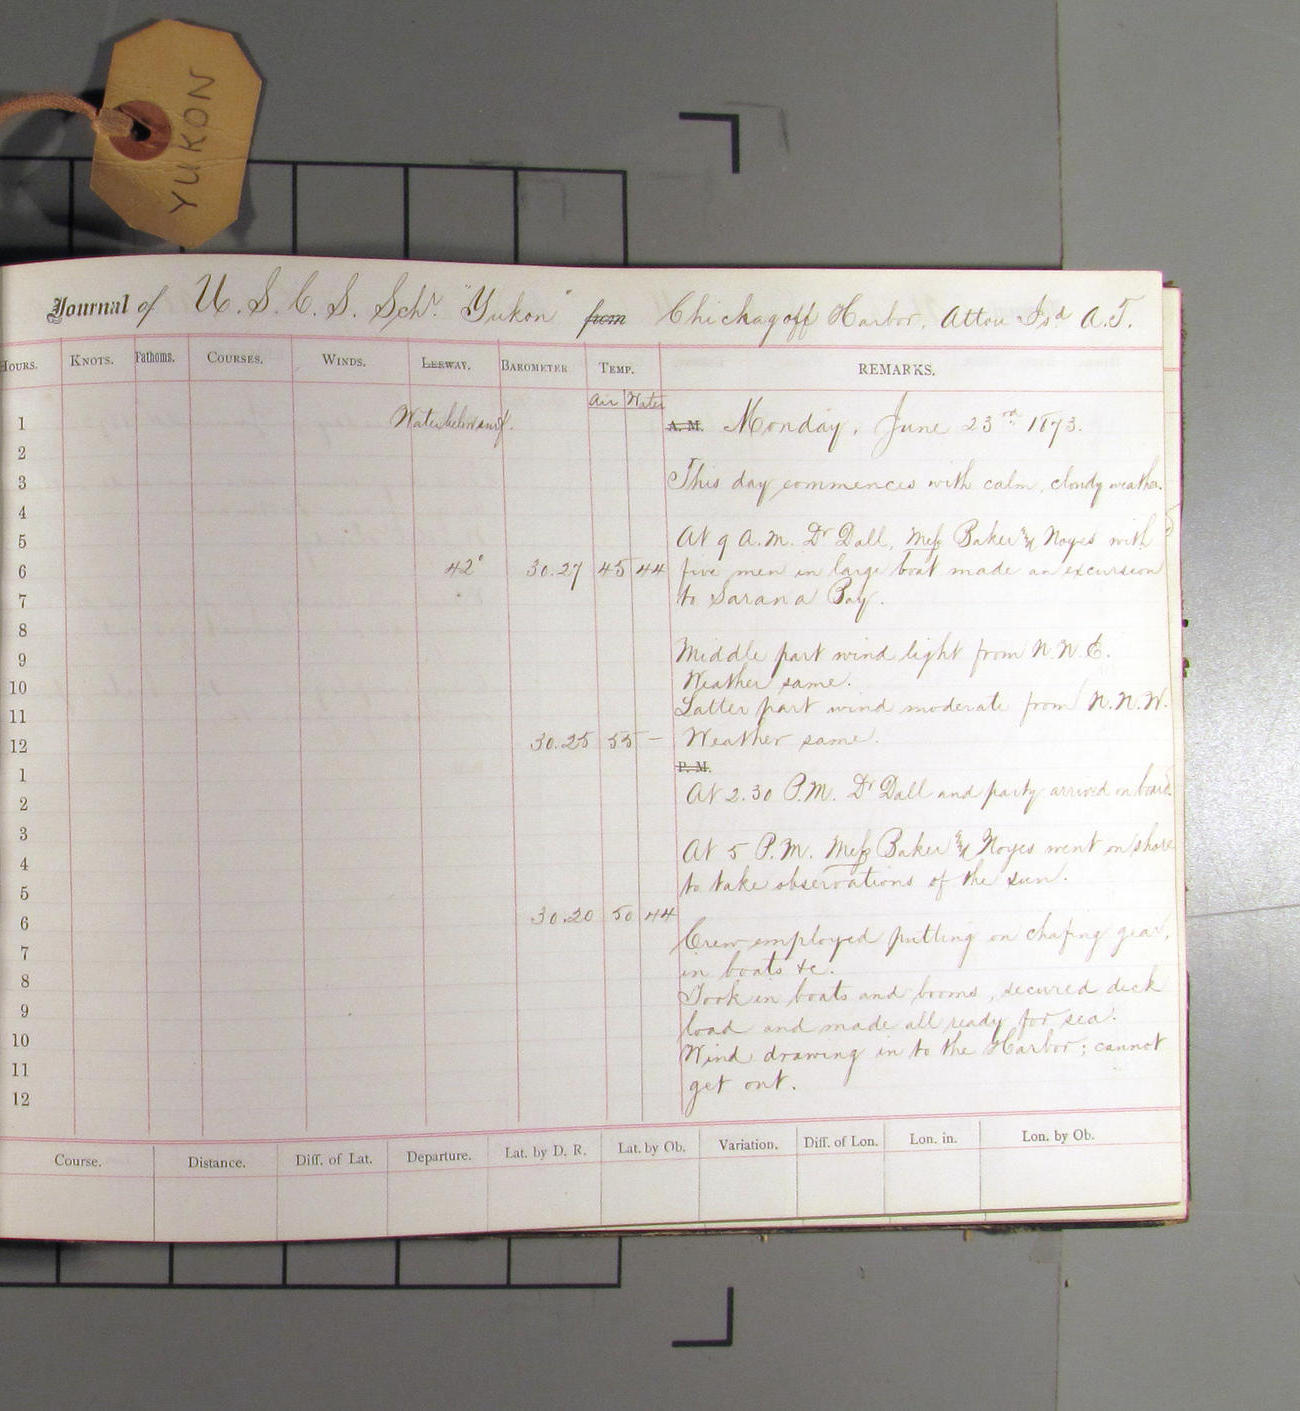 YUKON
Journal of U. S. C. S. Schr. "Yukon" from Chichagoff Harbor, Attou Isd A.T.
HOURS. KNOTS. Fathoms. COURSES. WINDS. LEEWAY. BAROMETER TEMP. REMARKS.
Air Water
1 Water below surf. A. M. Monday, June 23rd 1873.
2
3 This day commences with calm, cloudy weather.
4
5 At 9 A.M. Dr Dall, Mess Baker & Noyes with
6 42° 30.27 45 44 five men in large boat made an excursion
7 to Sarana Bay.
8
9 Middle part wind light from N.N.E.
10 Weather same.
11 Latter part wind moderate from N.N.W.
12 30.25 55 — Weather same.
1 P. M.
2 At 2.30 P.M. Dr Dall and party arrived on board.
3
4 At 5 P.M. Mess Baker & Noyes went on shore
5 to take observations of the sun.
6 30.20 50 44
7 Crew employed putting on chafing gear,
8 in boats &c.
9 Took in boats and booms, secured deck
10 load and made all ready for sea.
11 Wind drawing in to the Harbor; cannot
12 get out.
Course. Distance. Diff. of Lat. Departure. Lat. by D. R. Lat. by Ob. Variation. Diff. of Lon. Lon. in. Lon. by Ob.